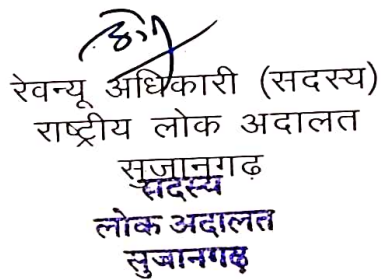 रेवन्यू अधिकारी (सदस्य)
राष्ट्रीय लोक अदालत
सुजानगढ़
सदस्य
लोक अदालत
सुजानगढ़